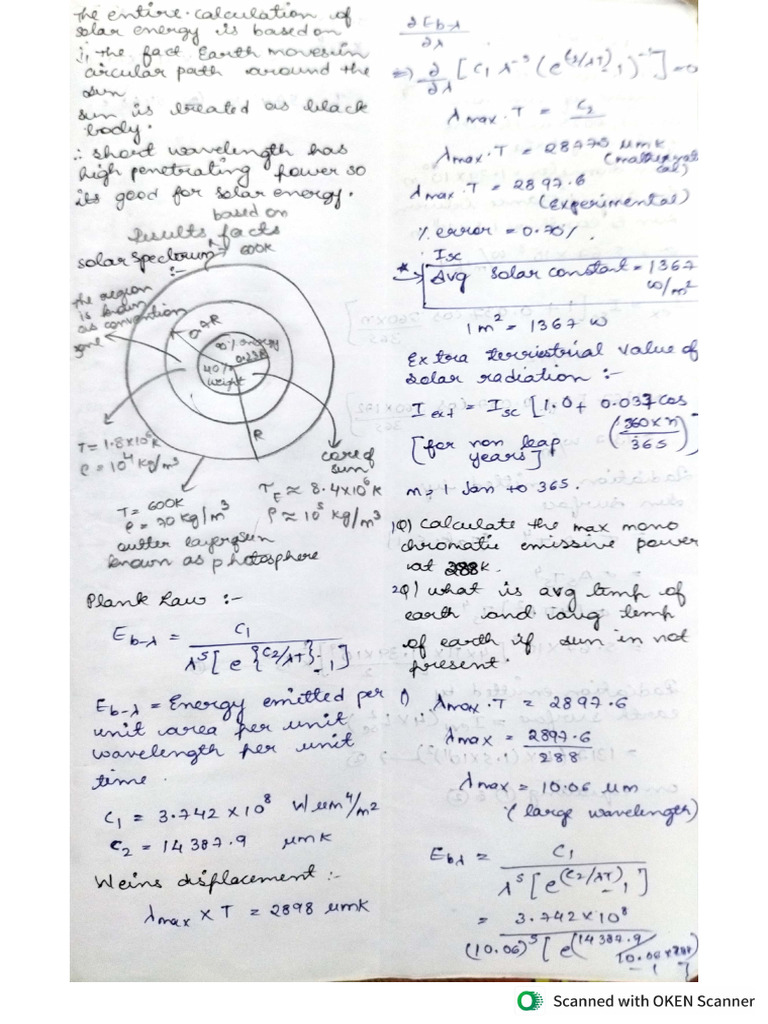 The entire calculation of
solar energy is based on
the fact Earth moves in
circular path around the
sun
sun is treated as black
body.
∴ short wavelength has
high penetrating power so
its good for solar energy.
based on
Results facts
solar spectrum :-
600K
the region
is known
as convention
zone
0.7R
90% energy
0.23R
40%
weight
R
T = 1.8×10⁵K
ρ = 10⁴ kg/m³
T = 600K
ρ = 70 kg/m³
outter layer of sun
known as photosphere
core of
sun
T_E ≈ 8.4×10⁶ K
ρ ≈ 10⁵ kg/m³
Plank Law :-
E_b-λ = C₁ / λ⁵[e^{C₂/λT} -1]
E_b-λ = Energy emitted per
unit area per unit
wavelength per unit
time.
C₁ = 3.742 × 10⁸ W μm⁴/m²
C₂ = 14387.9 μmK
Weins displacement :-
λmax × T = 2898 μmK
∂E_b-λ / ∂λ
=) ∂/∂λ [C₁ λ⁻⁵ (e^(C₂/λT) -1)⁻¹] = 0
λmax.T = C₂
(mathematical)
λmax.T = 2897.6
(Experimental)
% error = 0.70%.
Isc
* Avg solar constant = 1367
W/m²
1m² = 1367 W
Extra terriestrial value of
solar radiation :-
I ext = Isc [1.0 + 0.037 cos
(360×n / 365)]
[for non leap
years]
n = 1 Jan to 365.
1Q) Calculate the max mono
chromatic emissive power
at 288K.
2Q) what is avg temp of
earth and avg temp
of earth if sun in not
present.
1) λmax.T = 2897.6
λmax = 2897.6 / 288
λmax = 10.06 μm
(large wavelength)
E_bλ = C₁ / λ⁵[e^(C₂/λT) -1]
= 3.742×10⁸ / (10.06)⁵ [e^(14387.9 / 10.06×288) -1]
Scanned with OKEN Scanner